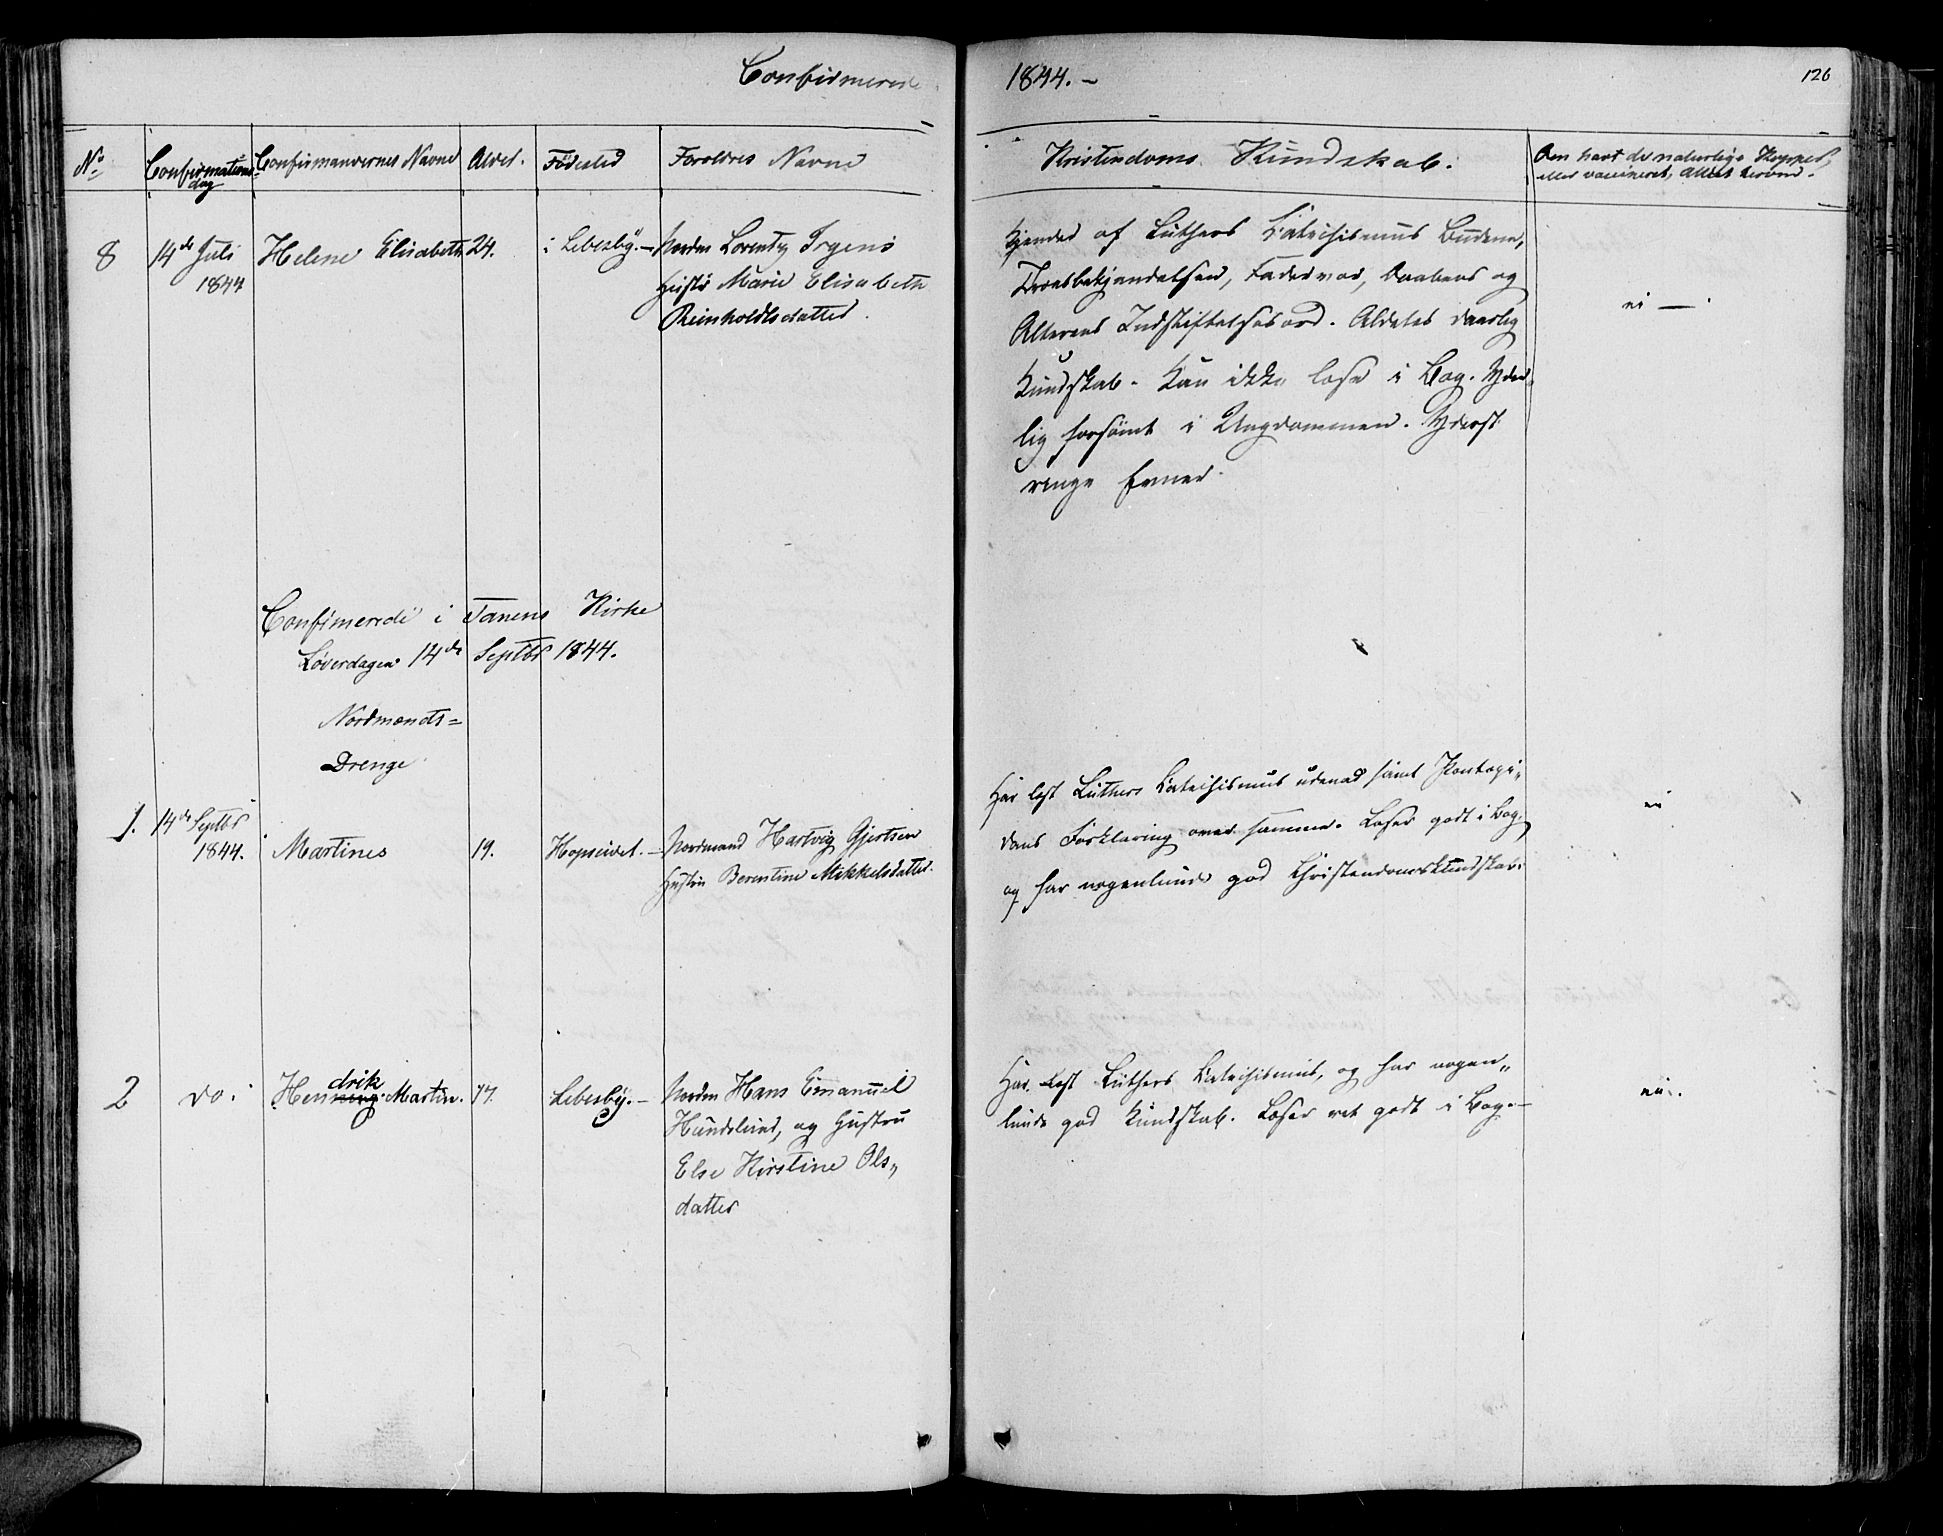 Confirmerede
1844. –
126
No
Confirmations
dag
Confirmandernes Navne
Alder.
Födested
Foreldres Navne
Kristendoms Kundskab.
Om havt de naturlige Kopper,
eller vaccineret, Attest herom.
8
14de Juli
1844
Helene Elisabeth
24.
i Lebesby. –
Nordm Lorentz Irgens
Hustr Marie Elisabeth
Reinholdtsdatter.
Kjender af Luthers Catechismus Budene,
Troesbekjendelsen, Fadervor, Daabens og
Alterens Indstiftelsesord. Aldeles daarlig
Kundskab. Kan ikke læse i Bog. Yder-
lig forsömt i Ungdommen. Yderst
ringe Evner.
ei –.
Confimerede i Tanens Kirke
Løverdagen 14de Septbr 1844.
Nordmænds=
Drenge
1.
14de Septbr
1844.
Martines
19.
Hopseidet. –
Nordmand Hartvig Gjertsen
Hustru Berentine Mikkelsdatter.
Har læst Luthers Catechismus udenad samt Pontopi„
dans Forklaring over samme. Læser godt i Bog,
og har nogenlunde god Christendomskundskab.
ei
2
do.
drik
Henning Martin.
17.
Lebesby. –
Nordm Hans Emanuel
Hundelund, og Hustru
Else Kirstine Ols„
datter
Har Læst Luthers Catechismus, og har nogen„
lunde god Kundskab. Læser ret godt i Bog. –
ei.